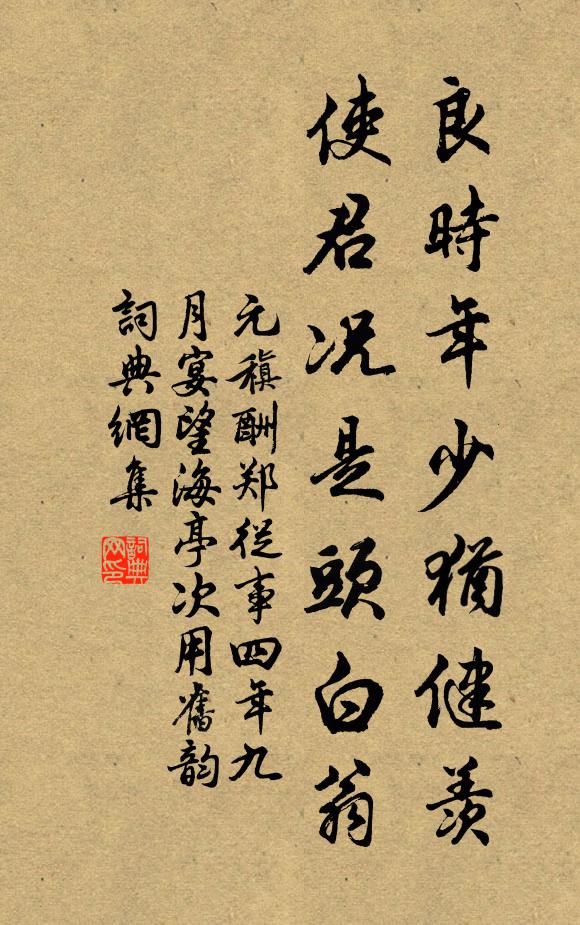 良時年少猶健羨
使君況是頭白翁
元稹酬郑從事四年九
月宴望海亭次用舊韵
詞典網集
詞典
网印